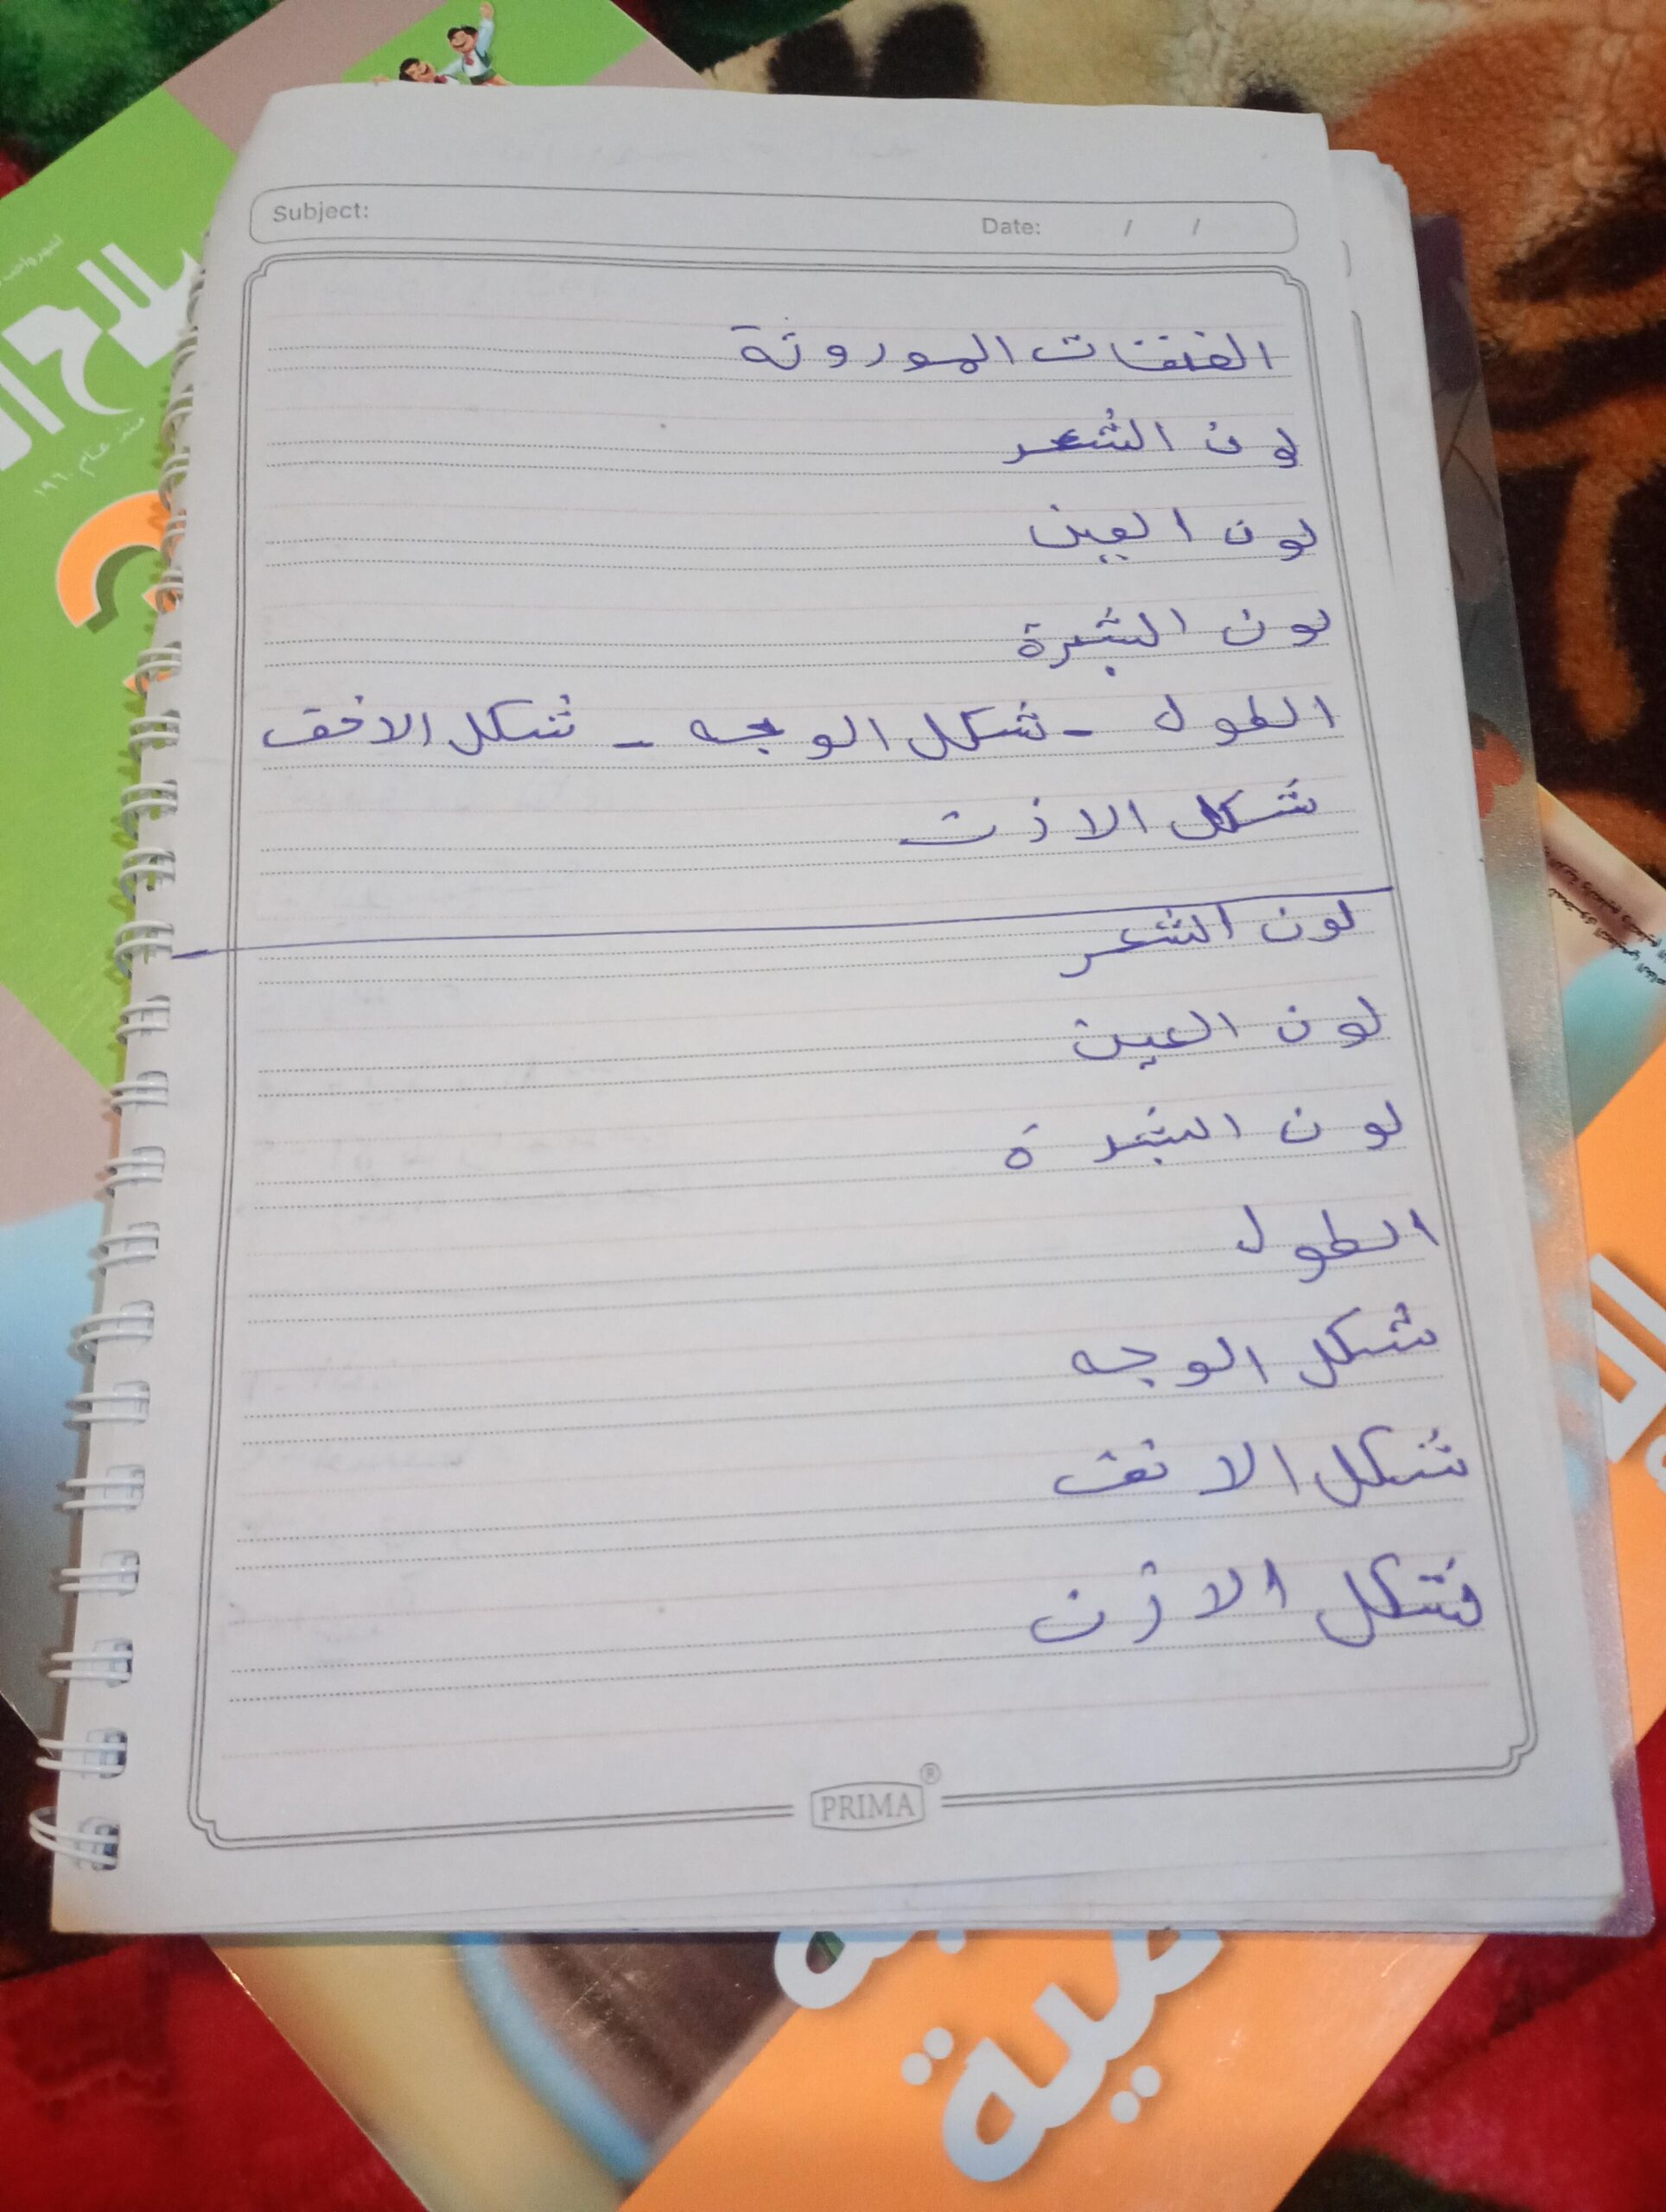 Subject:
Date: / /
الفتفات الموروثة
لون الشعر
لون العين
لون البشرة
الطول - شكل الوجه - شكل الانف
شكل الاذن
لون الشعر
لون العين
لون البشرة
الطول
شكل الوجه
شكل الانف
شكل الاذن
PRIMA®
سلاح ال
منذ عام ١٩٦٠